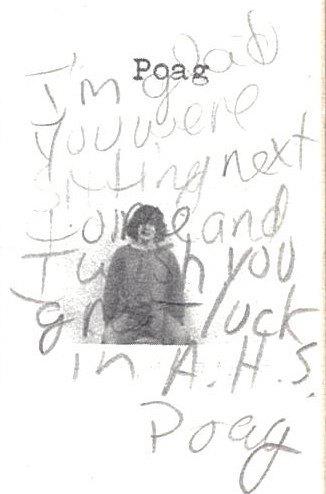 Poag
I'm glad
you were
sitting next
to me and
I wish you
great luck
in A.H.S.
Poag